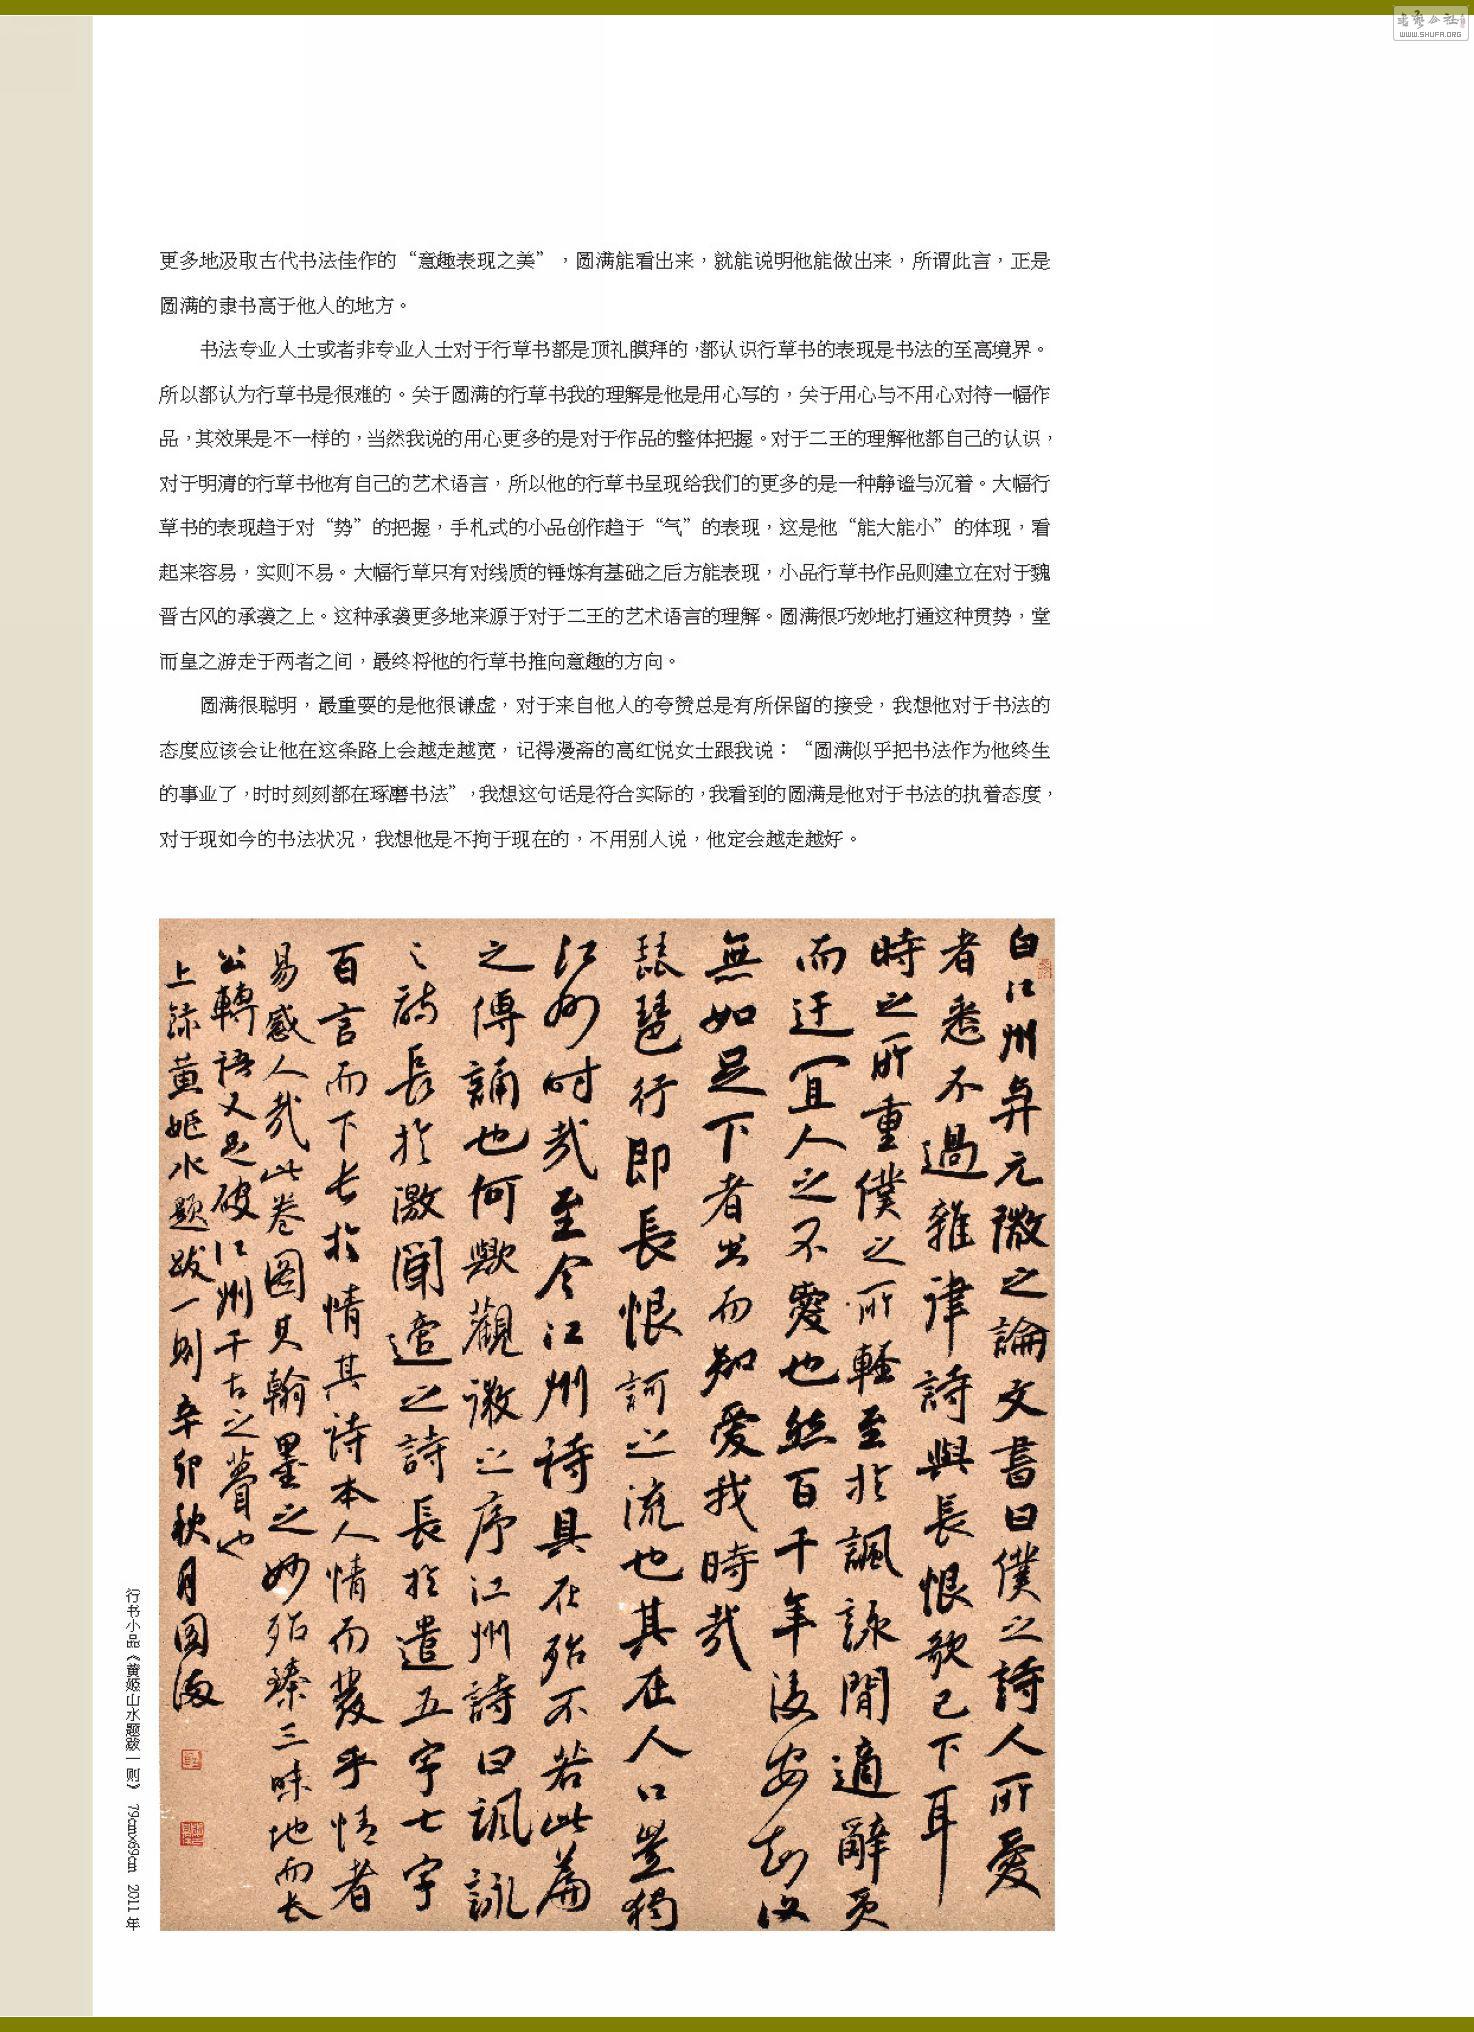 书艺公社
WWW.SHUFA.ORG
更多地汲取古代书法佳作的“意趣表现之美”，圆满能看出来，就能说明他能做出来，所谓此言，正是
圆满的隶书高于他人的地方。
书法专业人士或者非专业人士对于行草书都是顶礼膜拜的，都认识行草书的表现是书法的至高境界。
所以都认为行草书是很难的。关于圆满的行草书我的理解是他是用心写的，关于用心与不用心对待一幅作
品，其效果是不一样的，当然我说的用心更多的是对于作品的整体把握。对于二王的理解他都自己的认识，
对于明清的行草书他有自己的艺术语言，所以他的行草书呈现给我们的更多的是一种静谧与沉着。大幅行
草书的表现趋于对“势”的把握，手札式的小品创作趋于“气”的表现，这是他“能大能小”的体现，看
起来容易，实则不易。大幅行草只有对线质的锤炼有基础之后方能表现，小品行草书作品则建立在对于魏
晋古风的承袭之上。这种承袭更多地来源于对于二王的艺术语言的理解。圆满很巧妙地打通这种贯势，堂
而皇之游走于两者之间，最终将他的行草书推向意趣的方向。
圆满很聪明，最重要的是他很谦虚，对于来自他人的夸赞总是有所保留的接受，我想他对于书法的
态度应该会让他在这条路上会越走越宽，记得漫斋的高红悦女士跟我说：“圆满似乎把书法作为他终生
的事业了，时时刻刻都在琢磨书法”，我想这句话是符合实际的，我看到的圆满是他对于书法的执着态度，
对于现如今的书法状况，我想他是不拘于现在的，不用别人说，他定会越走越好。
白江州与元微之論文書曰僕之詩人所愛
者悉不過雜律詩與長恨歌已下耳
時之所重僕之所輕至於諷詠閒適辭質
而迂宜人之不愛也然百千年後安知復
無如足下者出而知愛我時哉
琵琶行即長恨訶之流也其在人口豈獨
江州时哉至今江州詩具在殆不若此篇
之傳誦也何歟觀微之序江州詩曰諷詠
之詩長於激閒適之詩長於遣五字七字
百言而下长於情其诗本人情而發乎情者
易感人哉此卷图其翰墨之妙殆臻三昧地而长
公轉语又足破江州千古之瞢也
上録黄姬水题跋一则辛卯秋月圆满
行书小品《黄姬山水题跋一则》 79cm×69cm 2011年